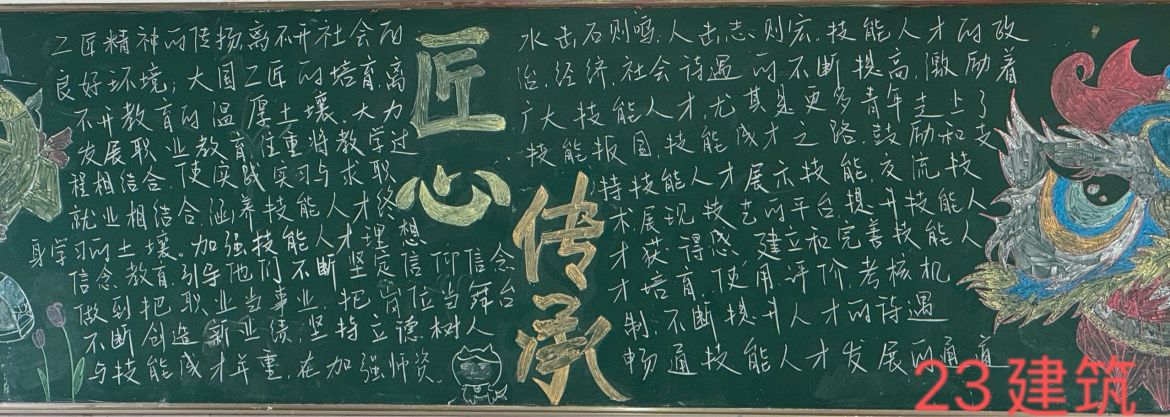 工匠精神的传扬离不开社会的
良好环境，大国工匠的培育离
不开教育的温厚土壤。大力
发展职业教育注重将教学过
程相结合，使实践实习与求职
就业相结合，涵养技能人才终
身学习的土壤。加强技能人才理想
信念教育，引导他们不断坚定信仰信念
做到把职业当事业，把岗位当舞台
不断创造新业绩，坚持立德树人
与技能成才并重，在加强师资
匠
心
传
承
水击石则鸣，人击志则宏，技能人才的政
治、经济、社会待遇的不断提高，激励着
广大技能人才，尤其是更多青年走上了
技能报国，技能成才之路，鼓励和支
持技能人才展示技能，交流技
术，展现技艺的平台，提升技能人
才获得感，建立和完善技能人
才培育、使用、评价、考核机
制，不断提升人才的待遇
畅通技能人才发展的通道
23建筑